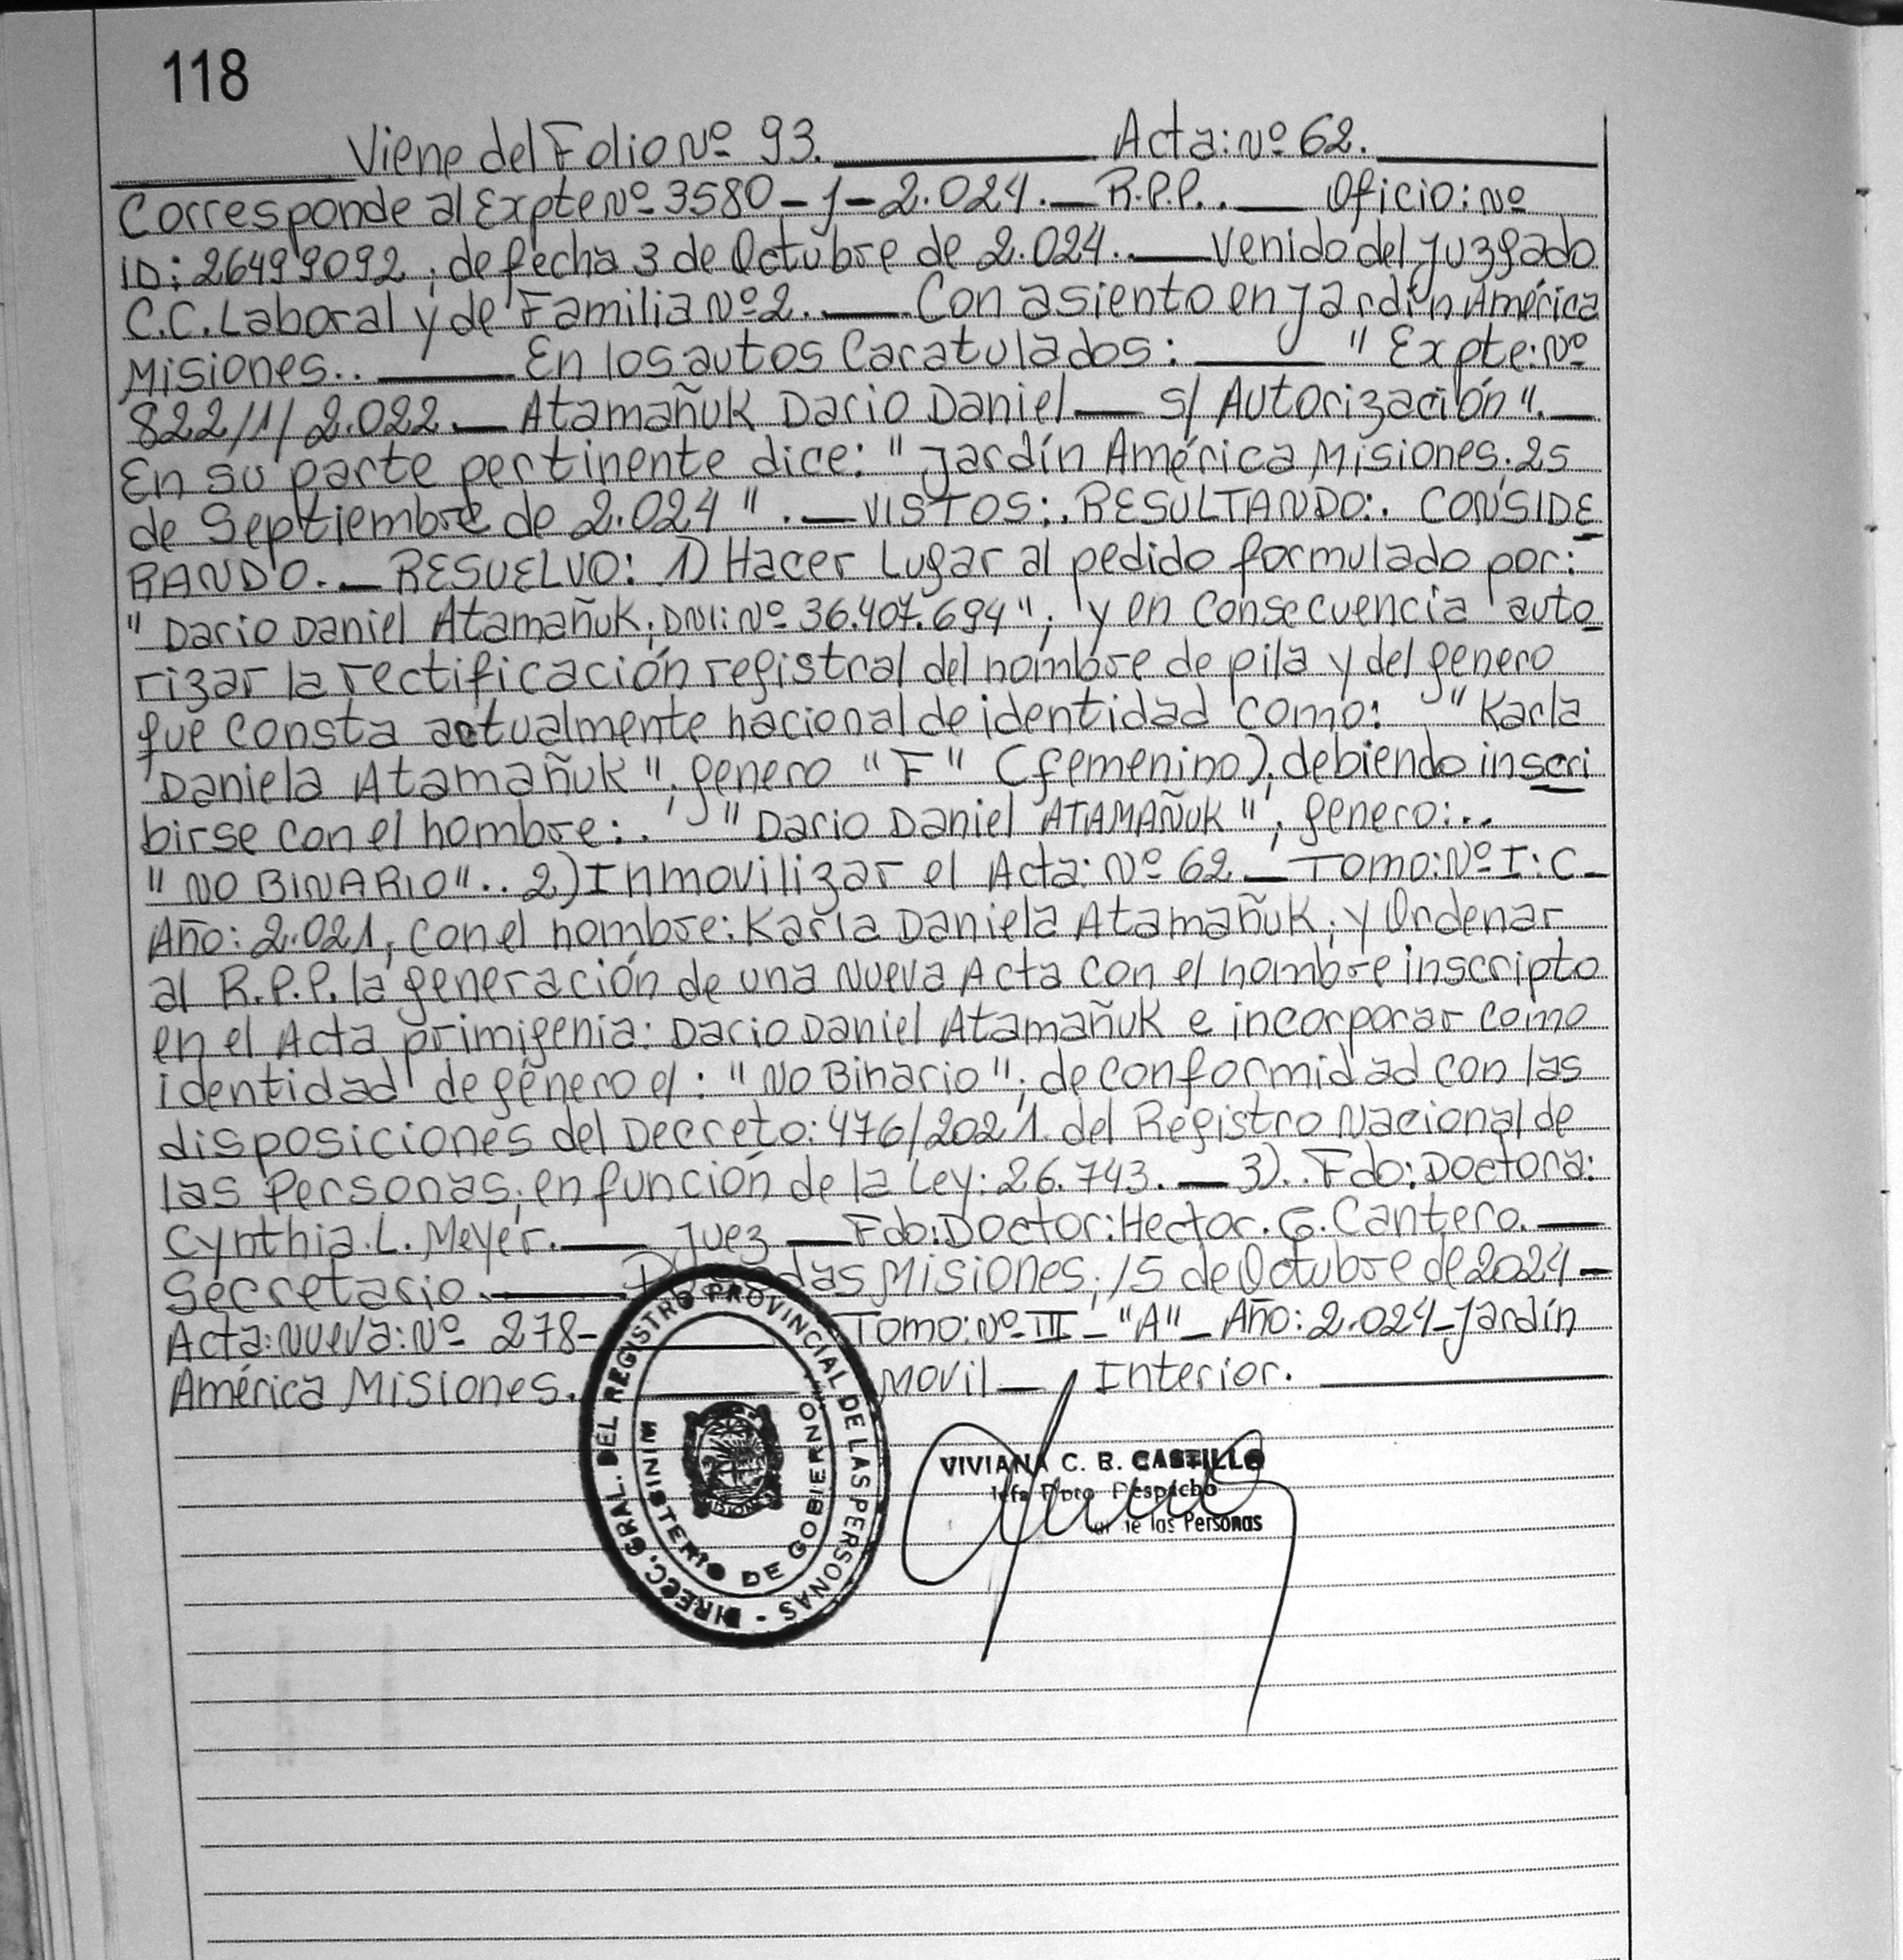 118
Viene del Folio Nº 93. Acta: Nº 62.
Corresponde al Expte Nº 3580-1-2.024. R.P.P.. Oficio: Nº
ID: 26499092, de fecha 3 de Octubre de 2.024.. Venido del Juzgado
C.C. Laboral y de Familia Nº 2.. Con asiento en Jardín América
Misiones.. En los autos Caratulados: " Expte: Nº
822/1/2.022. Atamañuk Dario Daniel s/ Autorización".
En su parte pertinente dice: " Jardín América Misiones; 25
de Septiembre de 2.024 ". VISTOS:. RESULTANDO:. CONSIDE
RANDO.. RESUELVO: 1) Hacer Lugar al pedido formulado por:
" Dario Daniel Atamañuk; DNI: Nº 36.407.694"; y en consecuencia auto
rizar la rectificación registral del nombre de pila y del genero
que consta actualmente nacional de identidad como: " Karla
Daniela Atamañuk "; genero "F" (femenino); debiendo inscri
birse con el nombre:. " Dario Daniel ATAMAÑUK "; genero:..
" NO BINARIO".. 2) Inmovilizar el Acta: Nº 62 - Tomo: Nº I: C-
Año: 2.021, con el nombre: Karla Daniela Atamañuk; y Ordenar
al R.P.P. la generación de una Nueva Acta con el nombre inscripto
en el Acta primigenia: Dario Daniel Atamañuk e incorporar como
identidad de género el: "No Binario"; de conformidad con las
disposiciones del Decreto: 476/2021. del Registro Nacional de
las Personas; en función de la Ley: 26.743. 3).. Fdo: Doctora:
Cynthia. L. Meyer. Juez Fdo: Doctor: Hector. G. Cantero.
Secretario. Misiones; 15 de Octubre de 2024-
Acta: Nueva: Nº 278- Tomo: Nº III - "A" - Año: 2.024- Jardín
América Misiones. Movil Interior.
DIRECC. GRAL. DEL REGISTRO PROVINCIAL DE LAS PERSONAS -
MINISTERIO DE GOBIERNO
MISIONES
VIVIANA C. B. CASTILLO
Jefa Dpto Despacho
de las Personas